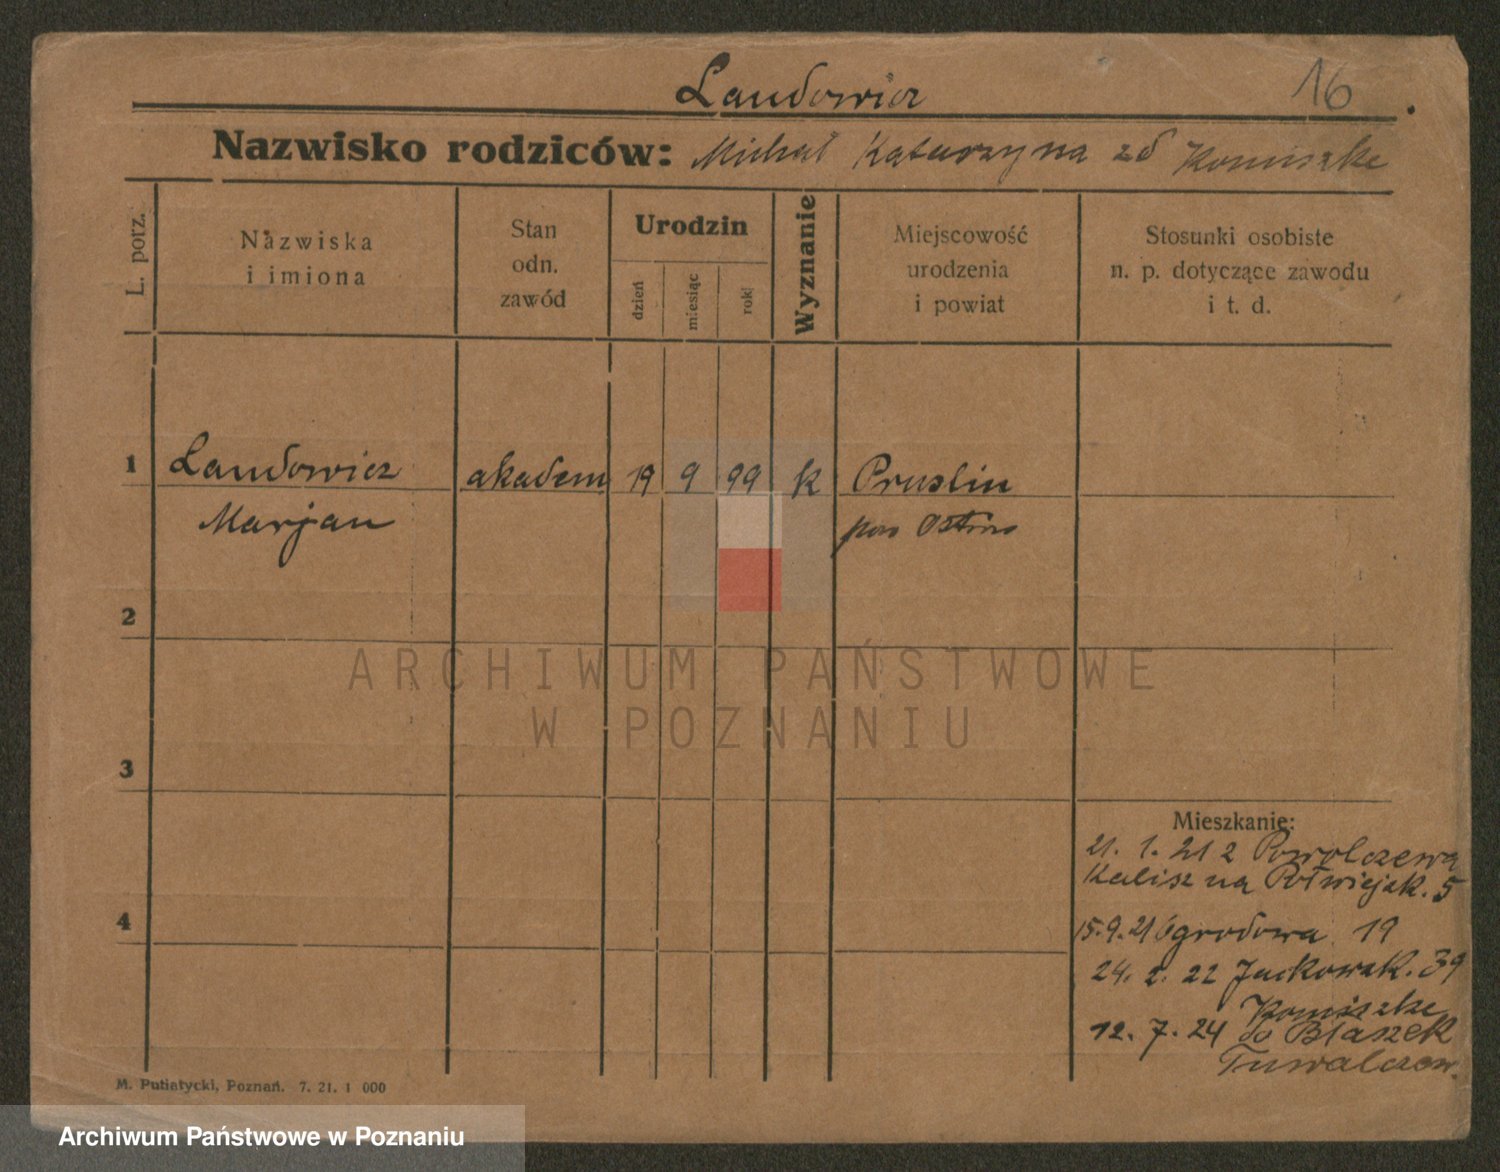 Landowicz
16
Nazwisko rodziców: Michał Katarzyna zd Komiszke
L. porz.
Nazwiska
i imiona
Stan
odn.
zawód
Urodzin
dzień
miesiąc
rok
Wyznanie
Miejscowość
urodzenia
i powiat
Stosunki osobiste
n. p. dotyczące zawodu
i t. d.
1 Landowicz akadem 19 9 99 k Pruslin
Marjan pow Ostrow
2
3
4
ARCHIWUM PAŃSTWOWE
W POZNANIU
Mieszkanie:
21. 1. 21 z
Kalisz na Półwiejsk. 5
15.9.21 Ogrodowa 19
24. 2. 22 Jackowsk. 39
Komiszke
12. 7. 24 do Błaszek
M. Putiatycki, Poznań. 7. 21. 1 000
Archiwum Państwowe w Poznaniu